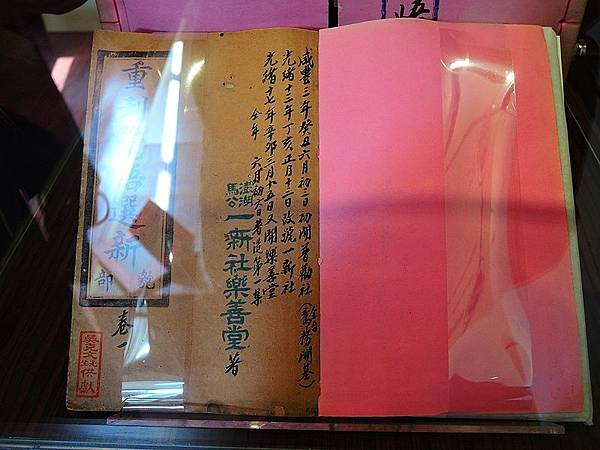 咸豐三年癸丑六月初三日初開普勸社
光緒十三年丁亥正月十三日改號一新社
光緒十七年辛卯三月十五日又開樂善堂
仝年 六月初
著造第一集
澎湖
馬公
一新社樂善堂著
重刊覺悟選新
匏部
卷一
供獻